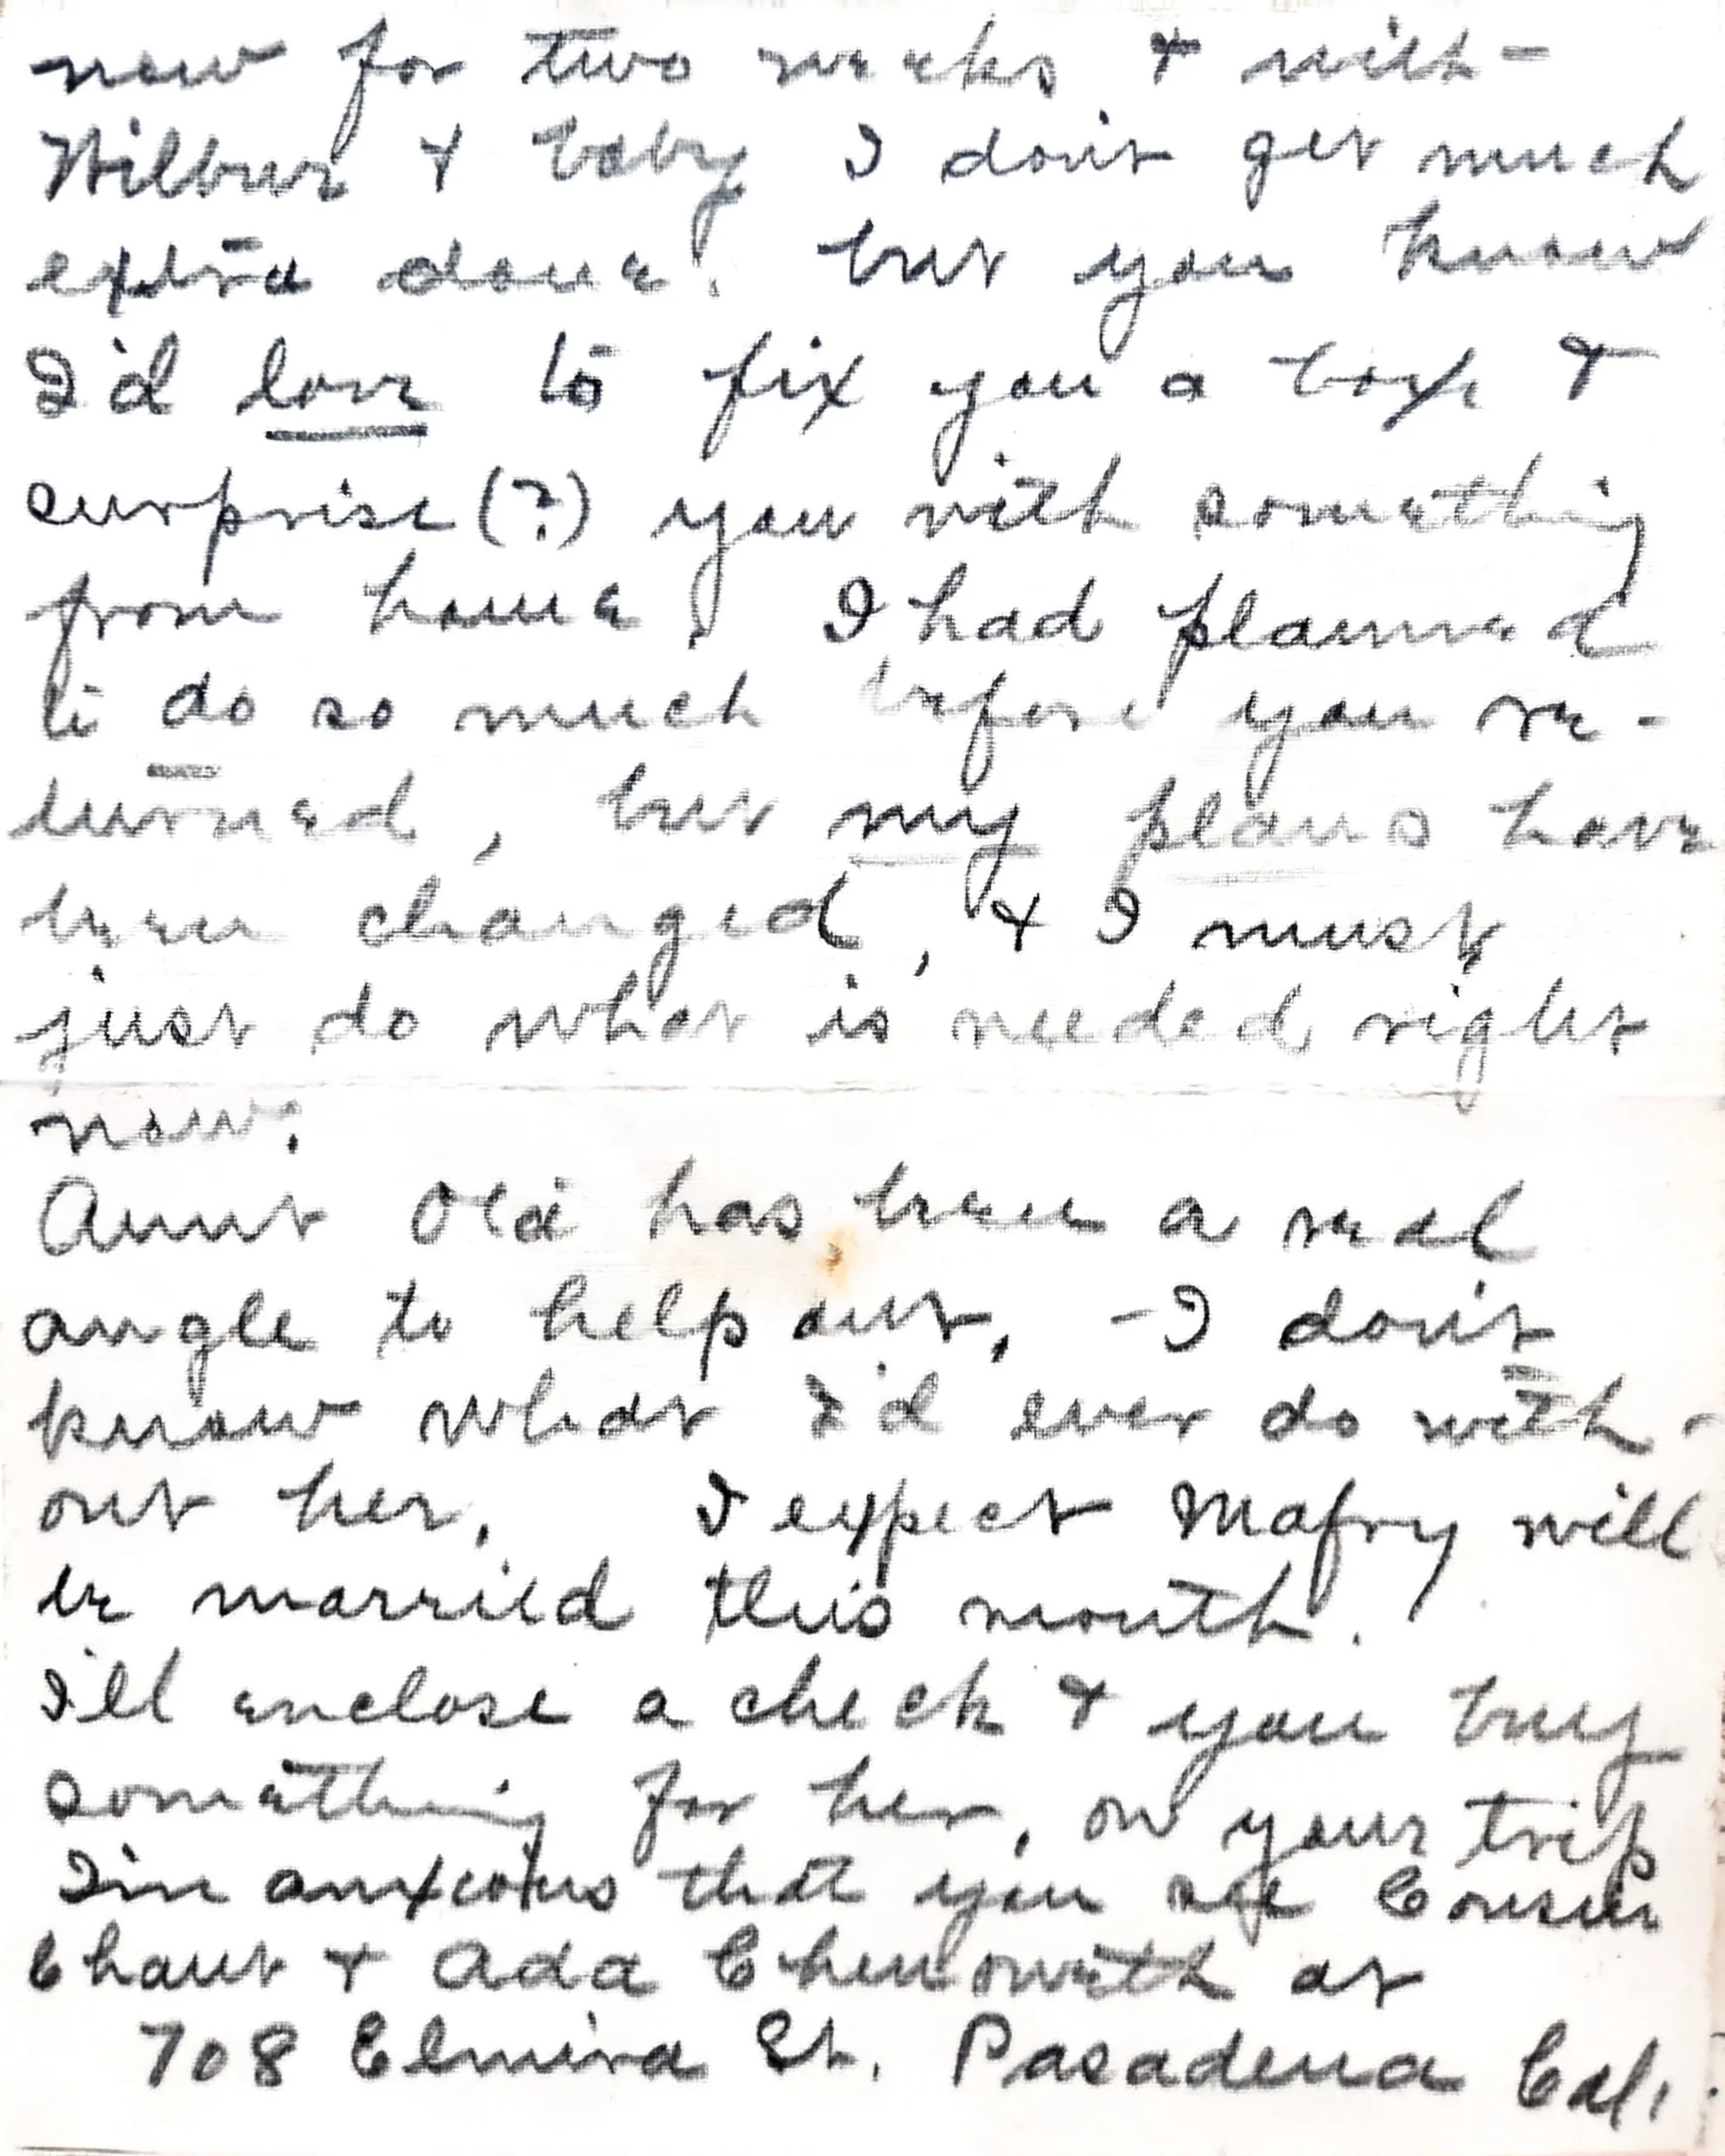 now for two weeks & with –
Wilbur & baby I don't get much
extra done. but you know
I'd love to fix you a box &
surprise (?) you with something
from home. I had planned
to do so much before you re-
turned, but my plans have
been changed, & I must
just do what is needed right
now.
Aunt Ola has been a real
angle to help out, – I don't
know what I'd ever do with-
out her. I expect Mafry will
be married this month.
I'll enclose a check & you buy
something for her, on your trip
I'm anxious that you see Cousin
& Ada Chenoweth at
708 Elmira St. Pasadena Cal.